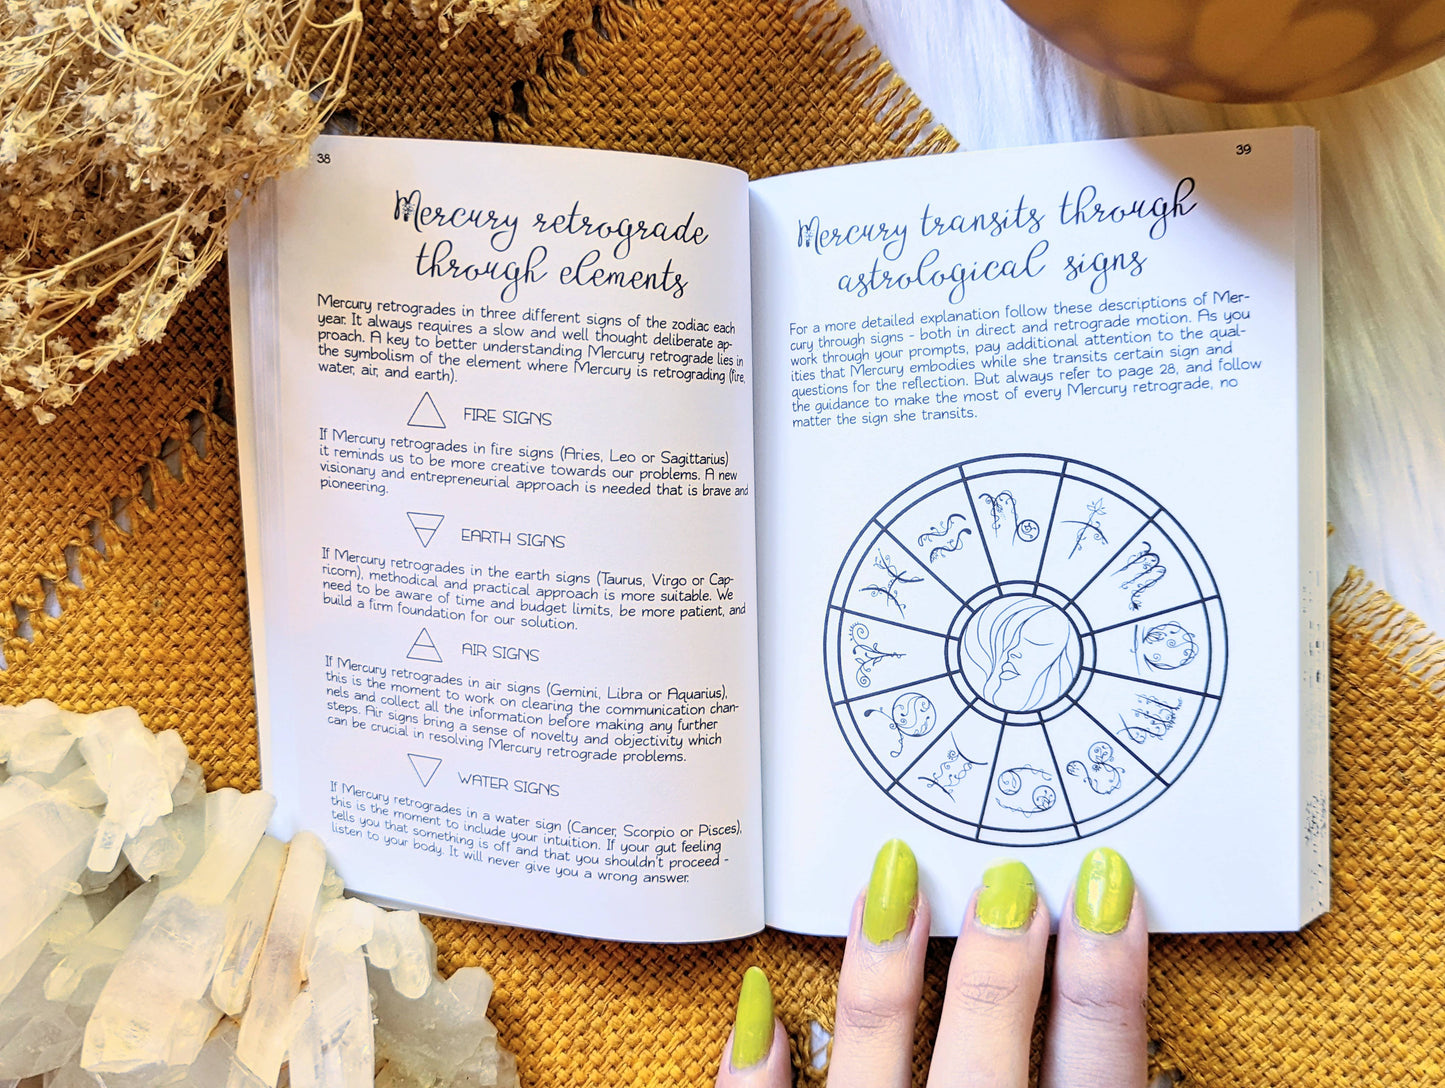 38
Mercury retrograde
through elements
Mercury retrogrades in three different signs of the zodiac each
year. It always requires a slow and well thought deliberate ap-
proach. A key to better understanding Mercury retrograde lies in
the symbolism of the element where Mercury is retrograding (fire,
water, air, and earth).
FIRE SIGNS
If Mercury retrogrades in fire signs (Aries, Leo or Sagittarius)
it reminds us to be more creative towards our problems. A new
visionary and entrepreneurial approach is needed that is brave and
pioneering.
EARTH SIGNS
If Mercury retrogrades in the earth signs (Taurus, Virgo or Cap-
ricorn), methodical and practical approach is more suitable. We
need to be aware of time and budget limits, be more patient, and
build a firm foundation for our solution.
AIR SIGNS
If Mercury retrogrades in air signs (Gemini, Libra or Aquarius),
this is the moment to work on clearing the communication chan-
nels and collect all the information before making any further
steps. Air signs bring a sense of novelty and objectivity which
can be crucial in resolving Mercury retrograde problems.
WATER SIGNS
If Mercury retrogrades in a water sign (Cancer, Scorpio or Pisces),
this is the moment to include your intuition. If your gut feeling
tells you that something is off and that you shouldn't proceed -
listen to your body. It will never give you a wrong answer.
39
Mercury transits through
astrological signs
For a more detailed explanation follow these descriptions of Mer-
cury through signs - both in direct and retrograde motion. As you
work through your prompts, pay additional attention to the qual-
ities that Mercury embodies while she transits certain sign and
questions for the reflection. But always refer to page 28, and follow
the guidance to make the most of every Mercury retrograde, no
matter the sign she transits.